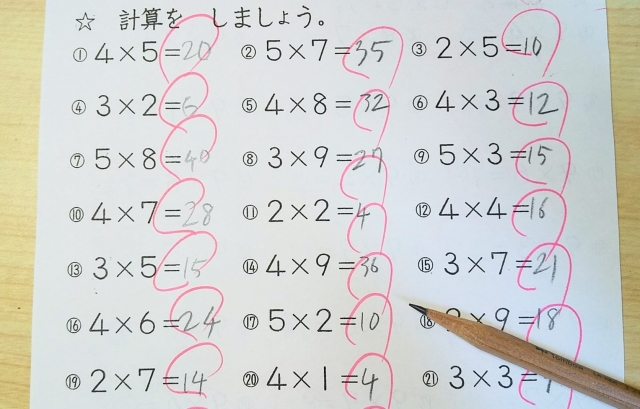 ☆ 計算を しましょう。
① 4×5=20 ② 5×7=35 ③ 2×5=10
④ 3×2=6 ⑤ 4×8=32 ⑥ 4×3=12
⑦ 5×8=40 ⑧ 3×9=27 ⑨ 5×3=15
⑩ 4×7=28 ⑪ 2×2=4 ⑫ 4×4=16
⑬ 3×5=15 ⑭ 4×9=36 ⑮ 3×7=21
⑯ 4×6=24 ⑰ 5×2=10 ⑱ 2×9=18
⑲ 2×7=14 ⑳ 4×1=4 ㉑ 3×3=